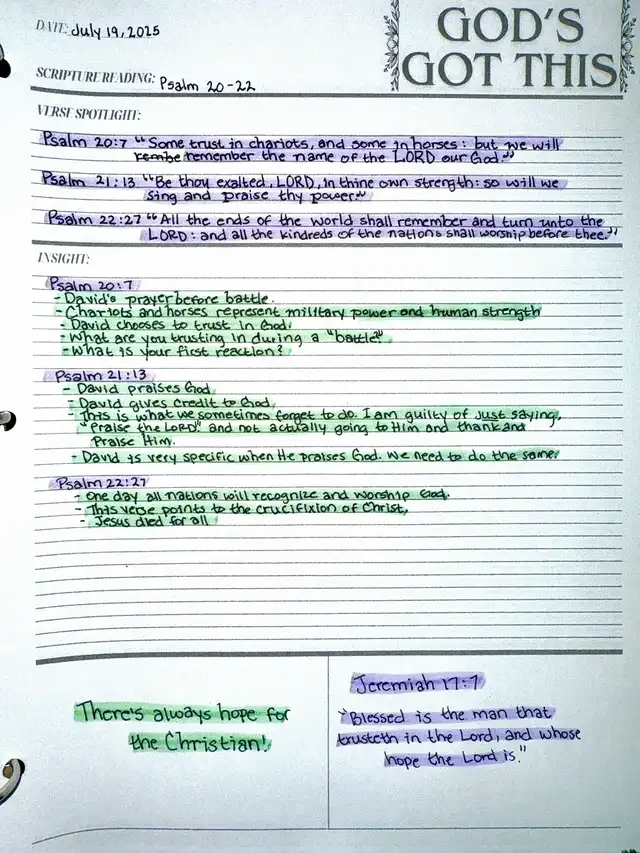 DATE: July 19, 2025
GOD'S
GOT THIS
SCRIPTURE READING: Psalm 20-22
VERSE SPOTLIGHT:
Psalm 20:7 "Some trust in chariots, and some in horses: but we will
remembe remember the name of the LORD our God."
Psalm 21:13 "Be thou exalted, LORD, in thine own strength: so will we
sing and praise thy power."
Psalm 22:27 "All the ends of the world shall remember and turn unto the
LORD: and all the kindreds of the nations shall worship before thee."
INSIGHT:
Psalm 20:7
- David's prayer before battle.
- Chariots and horses represent military power and human strength
- David chooses to trust in God.
- What are you trusting in during a "battle?"
- What is your first reaction?
Psalm 21:13
- David praises God
- David gives credit to God
- This is what we sometimes forget to do. I am guilty of just saying,
"Praise the LORD" and not actually going to Him and thank and
Praise Him.
- David is very specific when He praises God. We need to do the same.
Psalm 22:27
- One day all nations will recognize and worship God.
- This verse points to the crucifixion of Christ,
- Jesus died for all
There's always hope for
the Christian!
Jeremiah 17:7
"Blessed is the man that
trusteth in the Lord, and whose
hope the Lord is."